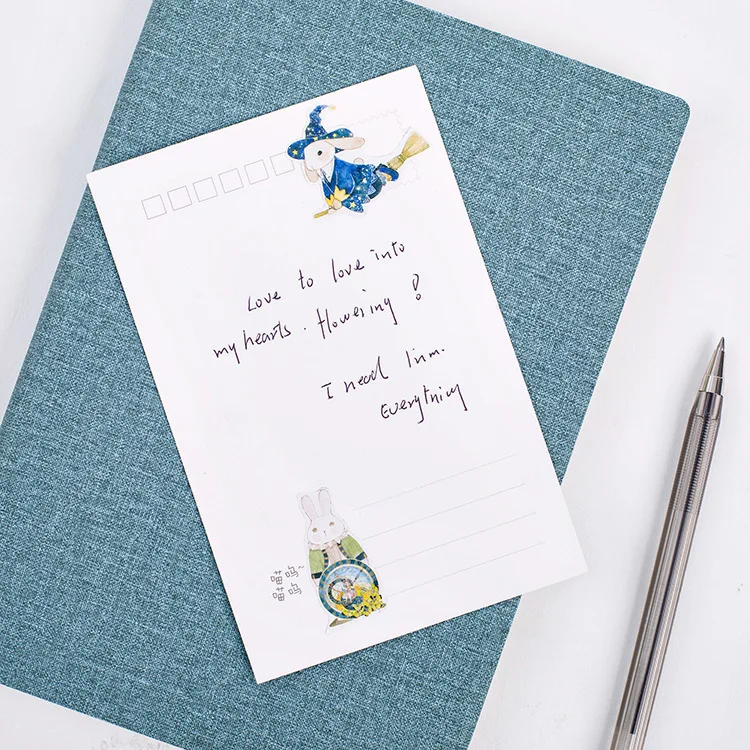 Love to love into
my hearts. flowering?
I need
Everything
喵呜~
喵呜